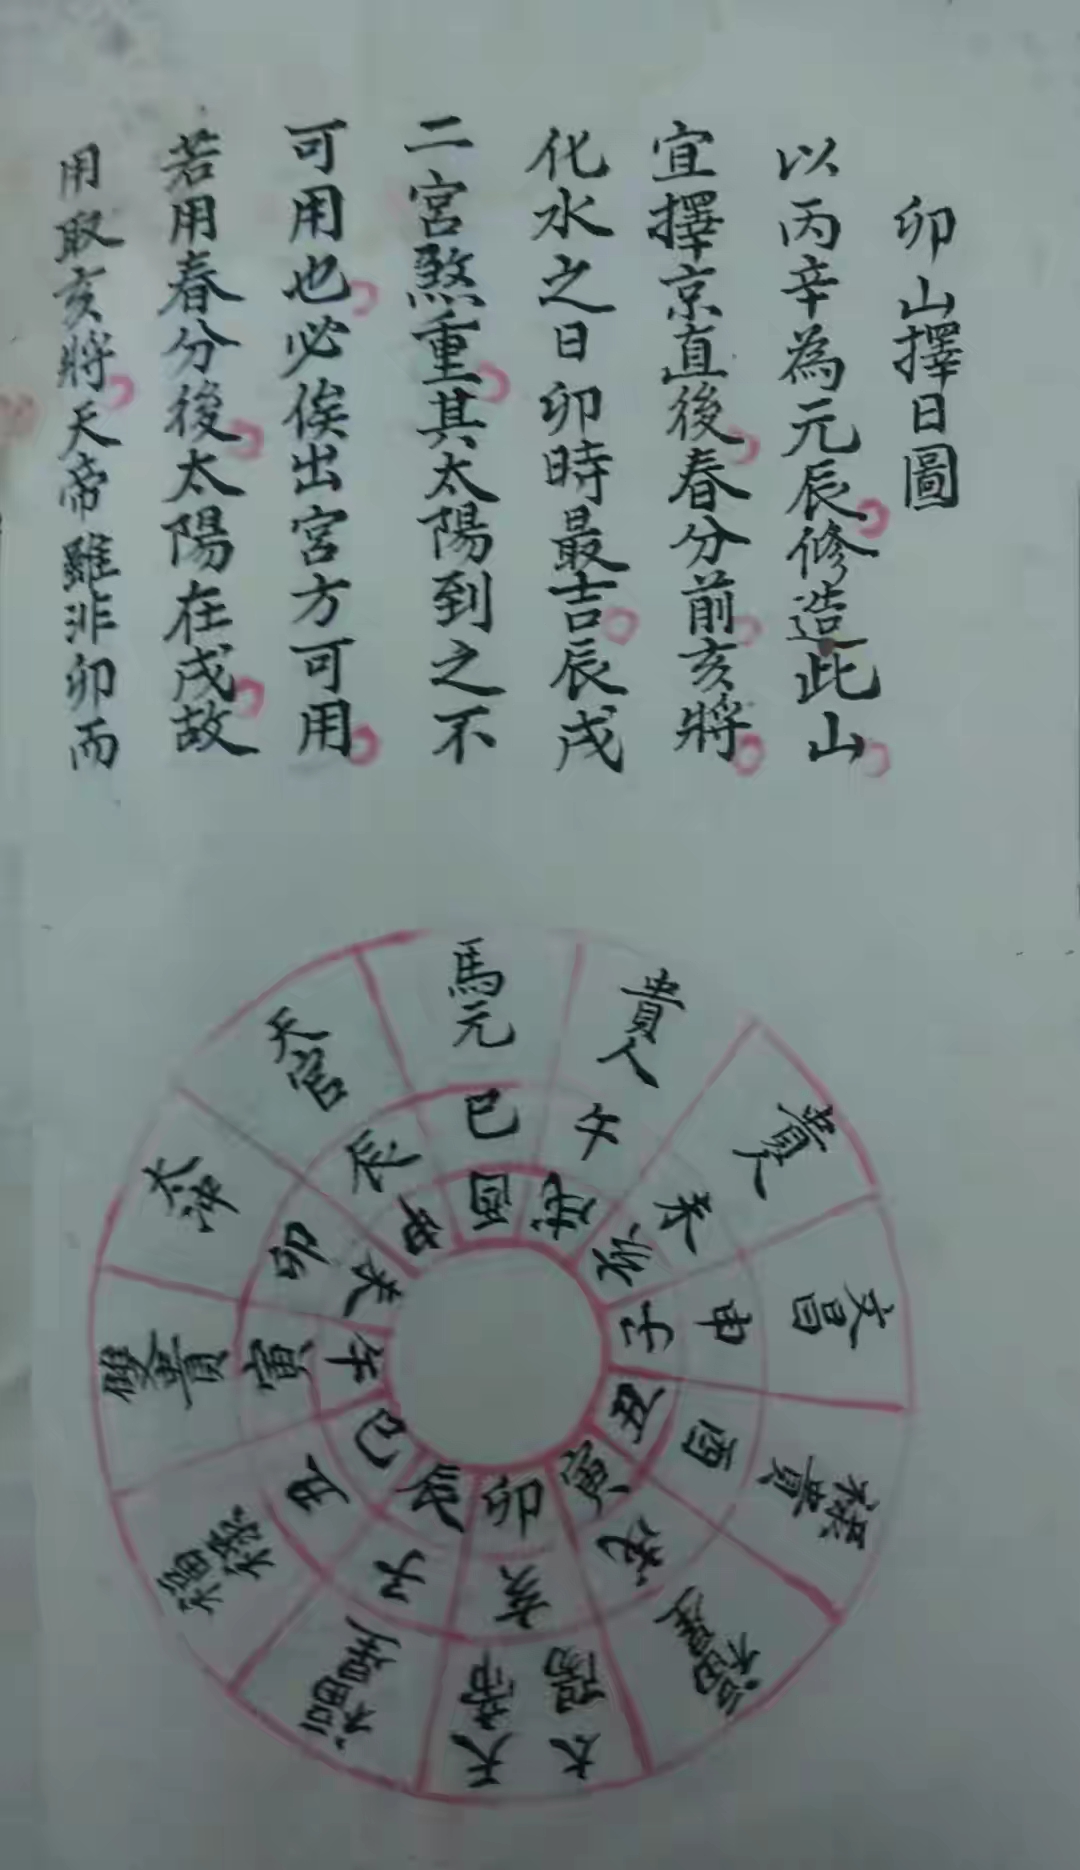 卯山擇日圖
以丙辛為元辰修造此山
宜擇京直後春分前亥將
化水之日卯時最吉辰戌
二宮煞重其太陽到之不
可用也必俟出宮方可用
若用春分後太陽在戌故
用取亥將天帝雖非卯而
馬元
貴人
貴人
文昌
福星
太陽
天帝
福星
雙貴
太沖
天官
巳
午
未
申
酉
戌
亥
子
丑
寅
卯
辰
酉
戌
亥
子
丑
寅
卯
辰
巳
午
未
申